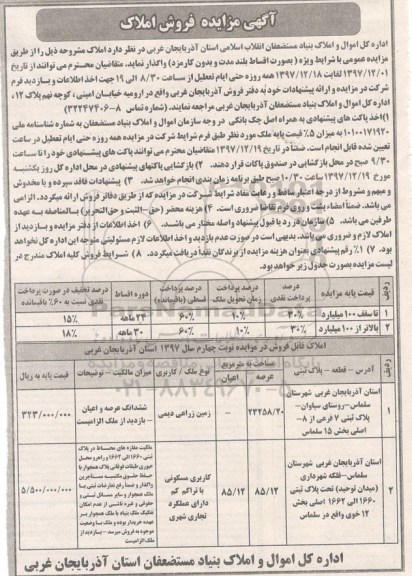 آگهی مزایده فروش املاک
اداره کل اموال و املاک بنیاد مستضعفان انقلاب اسلامی استان آذربایجان غربی در نظر دارد املاک مشروحه ذیل را از طریق
مزایده عمومی با شرایط ویژه ( بصورت اقساط بلند مدت و بدون کارمزد) واگذار نماید. متقاضیان محترم می توانند از تاریخ
۱۳۹۷/۱۲/۰۱ لغایت ۱۳۹۷/۱۲/۱۸ همه روزه حتی ایام تعطیل از ساعت ۸/۳۰ الی ۱۹ جهت اخذ اطلاعات و بازدید فرم
شرکت در مزایده و ارائه پیشنهادات خود به دفتر فروش آذربایجان غربی واقع در ارومیه خیابان امینی ، کوچه نهم پلاک ۱۲،
اداره کل اموال و املاک بنیاد مستضعفان آذربایجان غربی مراجعه نمایند. (شماره تماس ۸-۳۲۲۴۷۴۰۶)
۱)اخذ پاکت های پیشنهادی به همراه اصل چک بانکی در وجه سازمان اموال و املاک بنیاد مستضعفان به شماره شناسه ملی
۱۰۱۰۰۱۷۱۹۲۰ به میزان ۵٪ قیمت پایه ملک مورد نظر طبق فرم شرایط شرکت در مزایده همه روزه حتی ایام تعطیل در ساعت
تعیین شده قابل انجام است. ضمناً در تاریخ ۱۳۹۷/۱۲/۱۹ متقاضیان محترم می توانند پاکت های پیشنهادی خود را تا ساعت
۹/۳۰ صبح در محل بازگشایی در صندوق پاکات قرار دهند. ۲) بازگشایی پاکتهای پیشنهادی در محل اداره کل روز یکشنبه
مورخ ۱۳۹۷/۱۲/۱۹ ساعت ۱۰/۳۰ صبح طبق برنامه زمان بندی انجام خواهد شد. ۳) پیشنهادات فاقد سپرده و یا مخدوش
و مبهم و مشروط از درجه اعتبار ساقط و رعایت مفاد شرایط شرکت در مزایده که از طریق دفاتر فروش ارائه میگردد، الزامی
می باشد. ضمناً امضاء پشت و روی فرم تقاضا ضروری است. ۴) هزینه محضر (حق-الثبت و حق التحریر) بالمناصفه به عهده
طرفین می باشد. ۵) سازمان در رد یا قبول پیشنهاد واصله مختار می باشد. ۶) اخذ اطلاعات از دفتر مزایده و بازدید از
املاک لازم و ضروری می باشد. بدیهی است در صورت عدم بازدید و اخذ اطلاعات لازم مسئولیتی متوجه این اداره کل نخواهد
بود. ۷) ۱٪ رقم پیشنهادی بعنوان هزینه مزایده از برندگان نقداً دریافت میگردد. ۸) شرایط فروش کلیه املاک مندرج در
لیست مزایده بصورت جدول زیر خواهد بود.
ردیف | قیمت پایه مزایده | درصد پرداخت نقدی | درصد پرداخت زمان تحویل ملک | درصد پرداخت قسطی (باقیمانده) | دوره اقساط | درصد تخفیف در صورت پرداخت نقدی نسبت به ۶۰٪ باقیمانده
۱ | تا سقف ۱۰۰ میلیارد | ۳۰٪ | ۱۰٪ | ۶۰٪ | ۲۴ ماهه | ۱۵٪
۲ | بالاتر از ۱۰۰ میلیارد | ۳۰٪ | ۱۰٪ | ۶۰٪ | ۳۰ ماهه | ۱۸٪
املاک قابل فروش در مزایده نوبت چهارم سال ۱۳۹۷ استان آذربایجان غربی
ردیف | آدرس - قطعه - پلاک ثبتی | مساحت به مترمربع عرصه | اعیان | نوع ملک / کاربری | میزان مالکیت - توضیحات | قیمت پایه به ریال
۱ | استان آذربایجان غربی شهرستان سلماس-روستای سیاوان- پلاک ثبتی ۷ فرعی از ۸- اصلی بخش ۱۵ سلماس | ۲۳۲۵۸/۲۰ | - | زمین زراعی دیمی | ششدانگ عرصه و اعیان - بازدید از ملک الزامیست | ۳۲۳/۰۰۰/۰۰۰
۲ | استان آذربایجان غربی شهرستان سلماس-فلکه شهرداری (میدان توحید) تحت پلاک ثبتی ۱۶۶۰ الی ۱۶۶۲ اصلی بخش ۱۲ خوی واقع در سلماس | ۸۵/۱۲ | ۸۵/۱۲ | کاربری مسکونی با تراکم کم دارای عملکرد تجاری شهری | مالکیت مغازه های | ۵/۵۰۰/۰۰۰/۰۰۰
اداره کل اموال و املاک بنیاد مستضعفان استان آذربایجان غربی